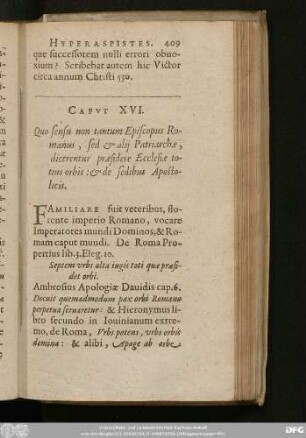 HYPERASPISTES. 409
que successorem nulli errori obno-
xium? Scribebat autem hic Victor
circa annum Christi 530.
CAPVT XVI.
Quo sensu non tantum Episcopus Ro-
manus, sed & alij Patriarchæ,
dicerentur præsidere Ecclesiæ to-
tius orbis: & de sedibus Aposto-
licis.
FAMILIARE fuit veteribus, flo-
rente imperio Romano, vocare
Imperatores mundi Dominos, & Ro-
mam caput mundi. De Roma Pro-
pertius lib. 3. Eleg. 10.
Septem vrbs alta iugis toti quæ præsi-
det orbi.
Ambrosius Apologiæ Dauidis cap. 6.
Docuit quemadmodum pax orbi Romano
perpetua seruaretur: & Hieronymus li-
bro secundo in Iouinianum extre-
mo, de Roma, Vrbs potens, vrbs orbis
domina: & alibi, Apage ab orbe
DFG